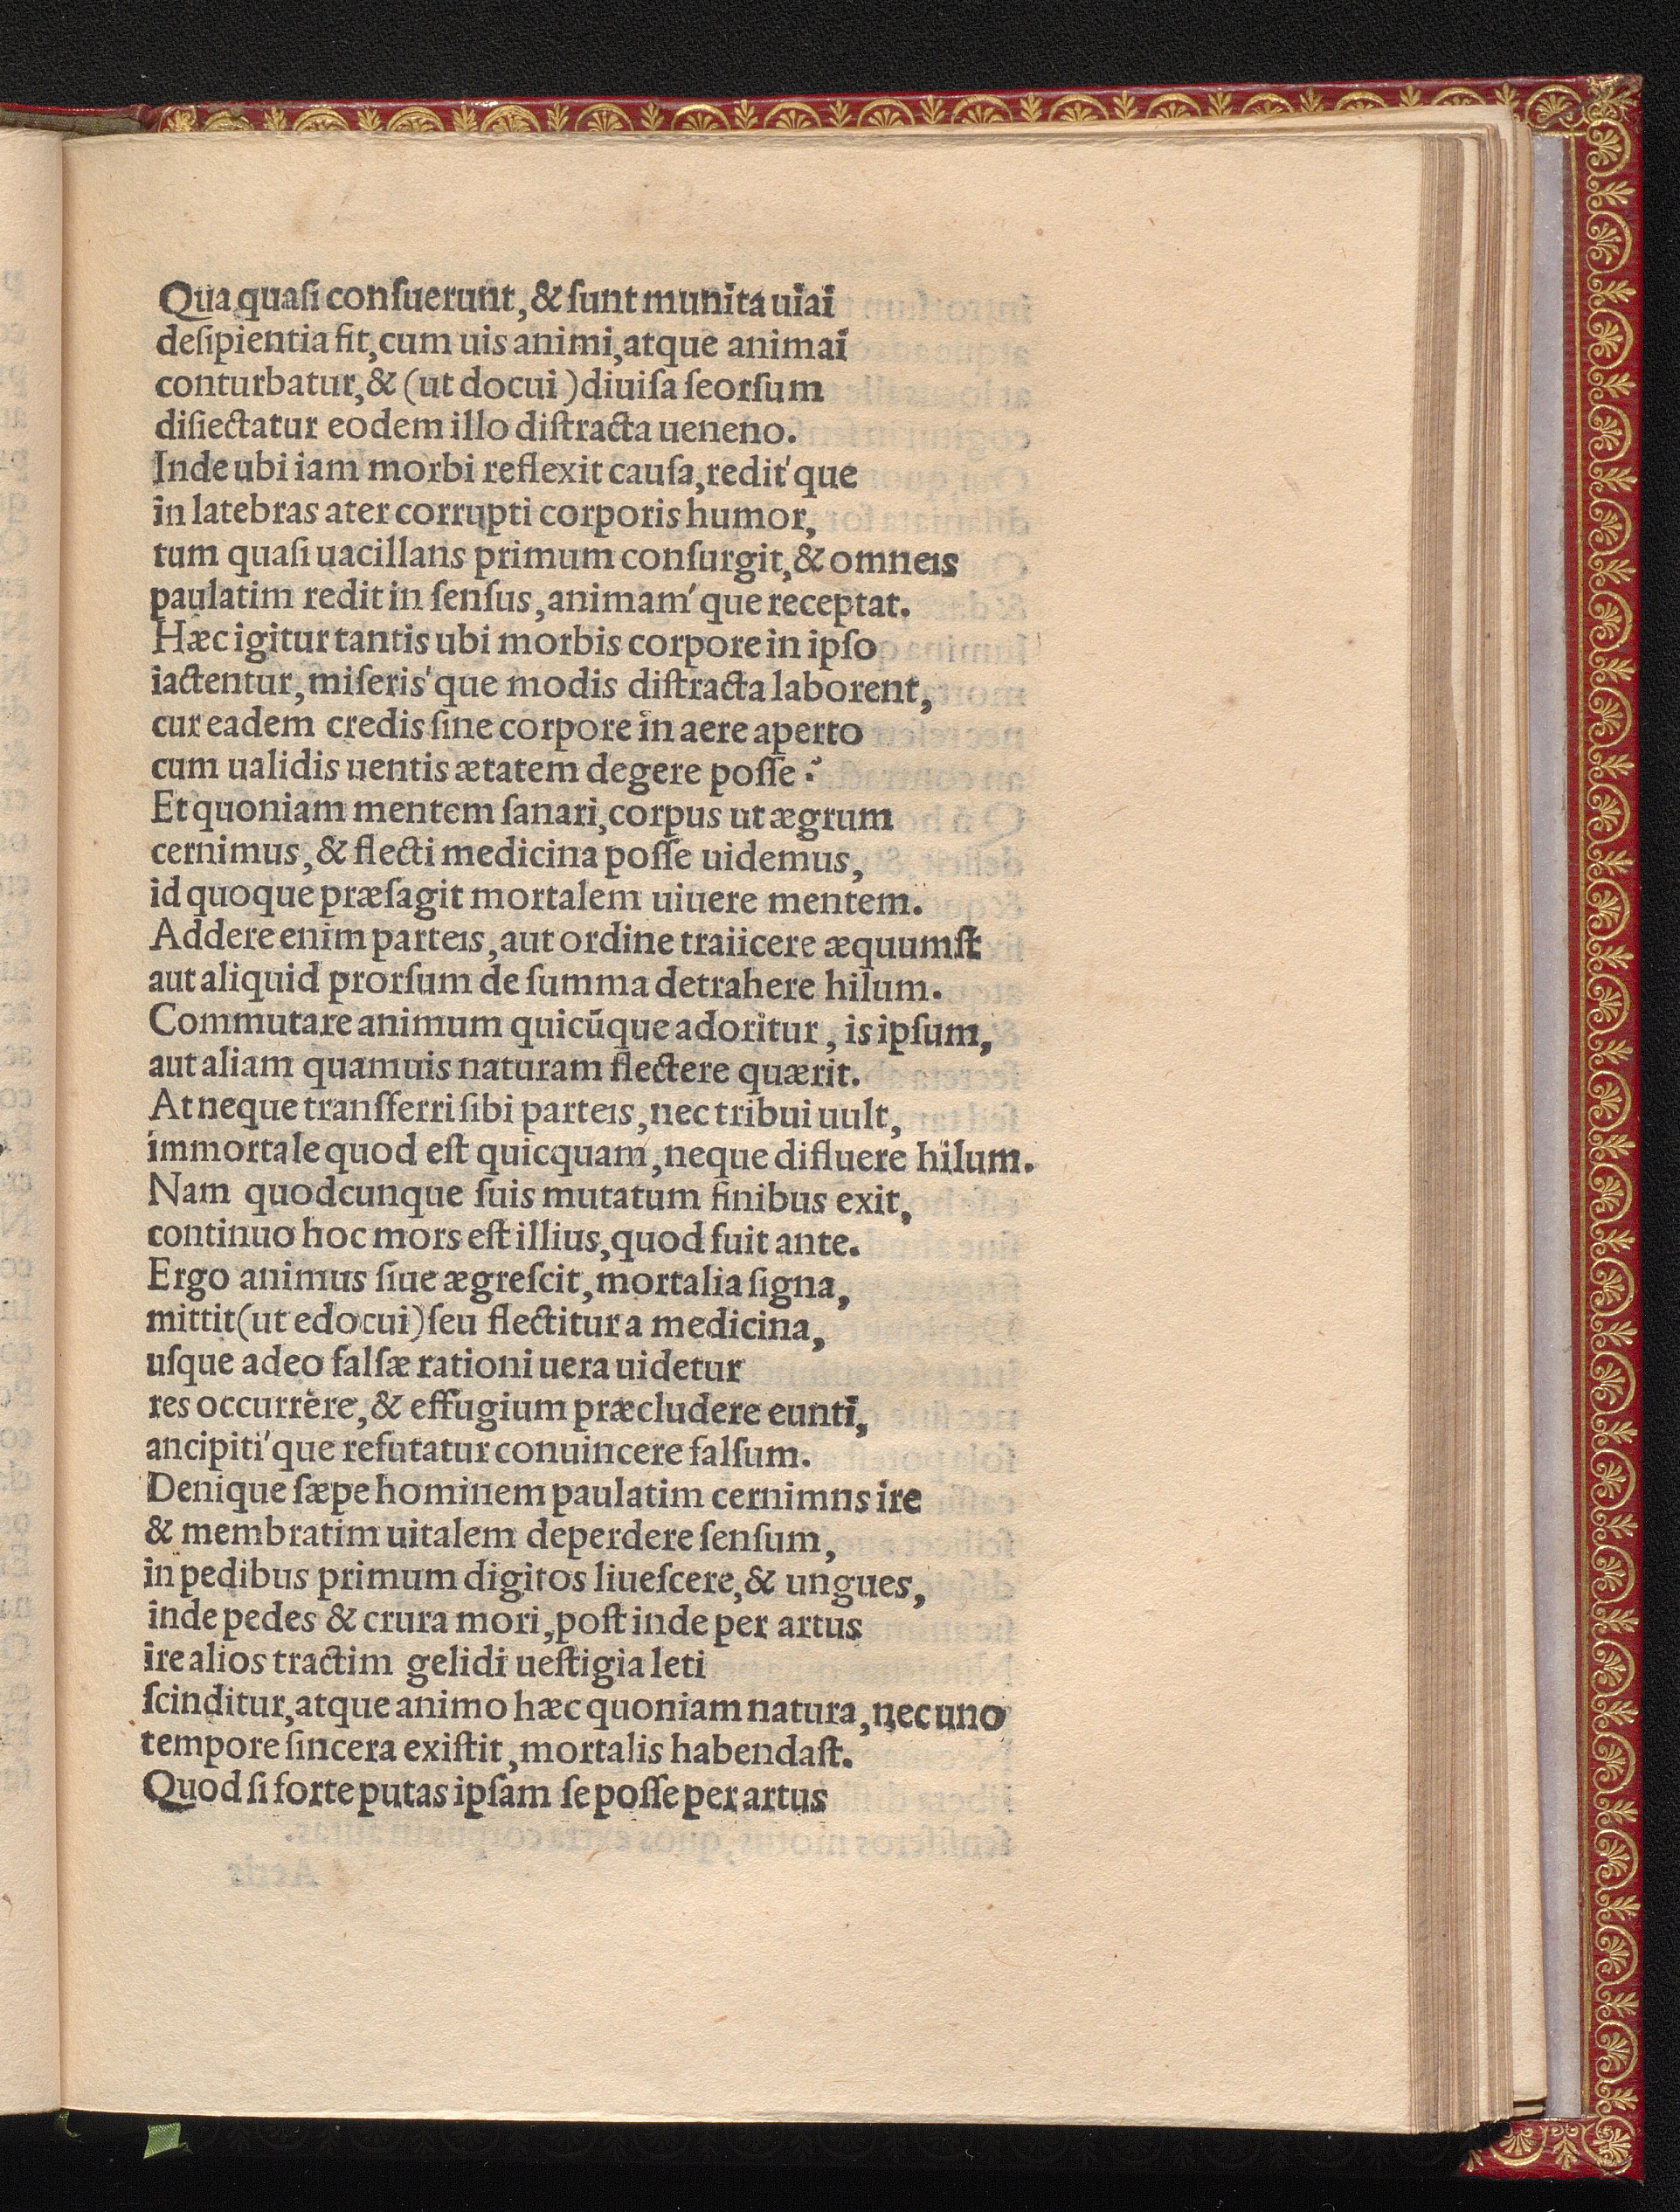 Qua quaſi conſuerunt, & ſunt munita uiai
deſipientia fit, cum uis animi, atque animai
conturbatur, & (ut docui) diuiſa ſeorſum
diſiectatur eodem illo diſtracta ueneno.
Inde ubi iam morbi reflexit cauſa, redit'que
in latebras ater corrupti corporis humor,
tum quaſi uacillans primum conſurgit, & omneis
paulatim redit in ſenſus, animam'que receptat.
Hæc igitur tantis ubi morbis corpore in ipſo
iactentur, miſeris'que modis diſtracta laborent,
cur eadem credis ſine corpore in aere aperto
cum ualidis uentis ætatem degere poſſe?
Et quoniam mentem ſanari, corpus ut ægrum
cernimus, & flecti medicina poſſe uidemus,
id quoque præſagit mortalem uiuere mentem.
Addere enim parteis, aut ordine traiicere æquumſt
aut aliquid prorſum de ſumma detrahere hilum.
Commutare animum quicūque adoritur, is ipſum,
aut aliam quamuis naturam flectere quærit.
At neque tranſferri ſibi parteis, nec tribui uult,
immortale quod eſt quicquam, neque difluere hilum.
Nam quodcunque ſuis mutatum finibus exit,
continuo hoc mors eſt illius, quod fuit ante.
Ergo animus ſiue ægreſcit, mortalia ſigna,
mittit (ut edocui) ſeu flectitur a medicina,
uſque adeo falſæ rationi uera uidetur
res occurrere, & effugium præcludere eunti,
ancipiti'que refutatur conuincere falſum.
Denique ſæpe hominem paulatim cernimns ire
& membratim uitalem deperdere ſenſum,
in pedibus primum digitos liueſcere, & ungues,
inde pedes & crura mori, poſt inde per artus
ire alios tractim gelidi ueſtigia leti
ſcinditur, atque animo hæc quoniam natura, nec uno
tempore ſincera exiſtit, mortalis habendaſt.
Quod ſi forte putas ipſam ſe poſſe per artus